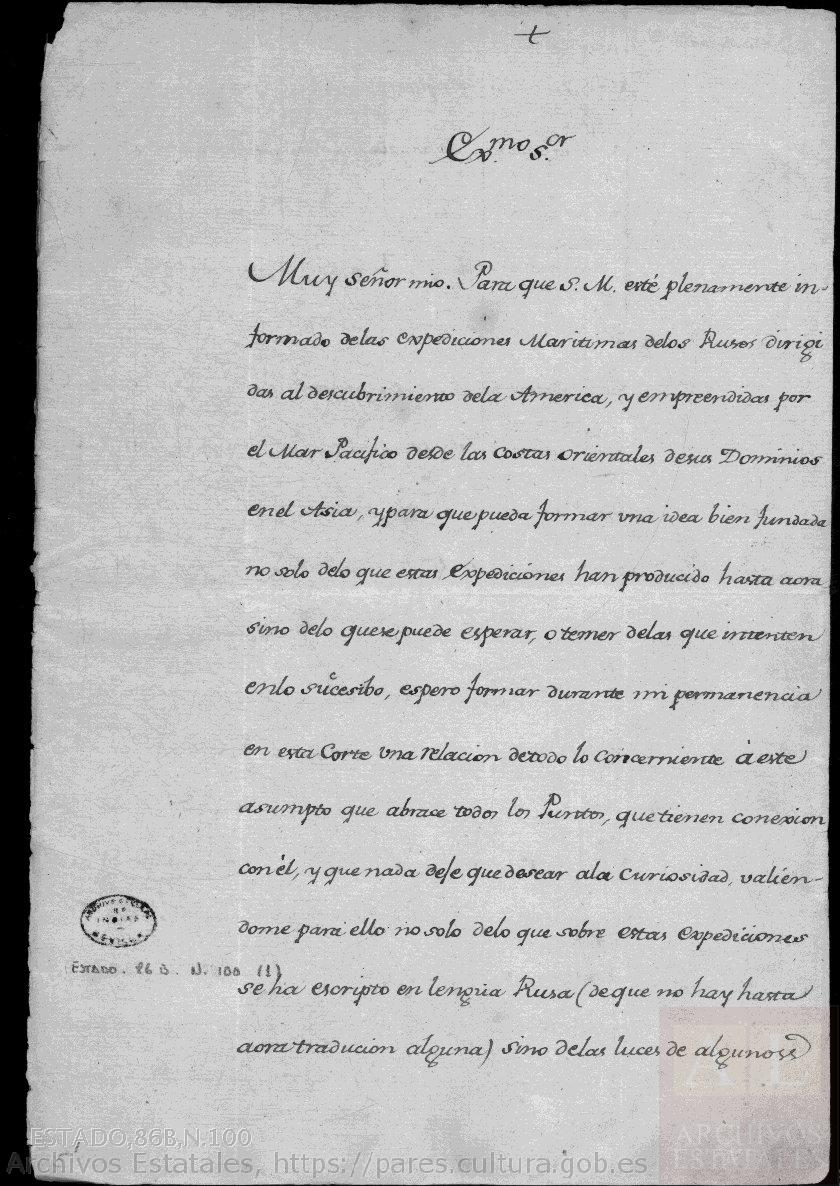 +
Exmo. Sor.
Muy señor mio. Para que S. M. esté plenamente in-
formado delas expediciones Maritimas delos Rusos dirigi
das al descubrimiento dela America, y emprendidas por
el Mar Pacifico desde las costas orientales desus Dominios
enel Asia, y para que pueda formar una idea bien fundada
no solo delo que estas Expediciones han producido hasta aora
sino delo quese puede esperar, o temer delas que intenten
enlo succesibo, espero formar durante mi permanencia
en esta Corte una relacion detodo lo Concerniente à este
asumpto que abrace todos los Puntos, que tienen conexion
con él, y que nada deje que desear ala Curiosidad, valien-
dome para ello no solo delo que sobre estas expediciones
se ha escripto en lengua Rusa (de que no hay hasta
aora traducion alguna) sino delas luces de algunos
ARCHIVO GENERAL
DE
INDIAS
SEVILLA
Estado. 86 B. N. 100 (1)
ESTADO,86B,N.100
Archivos Estatales, https://pares.cultura.gob.es
AL
ARCHIVOS
ESTATALES